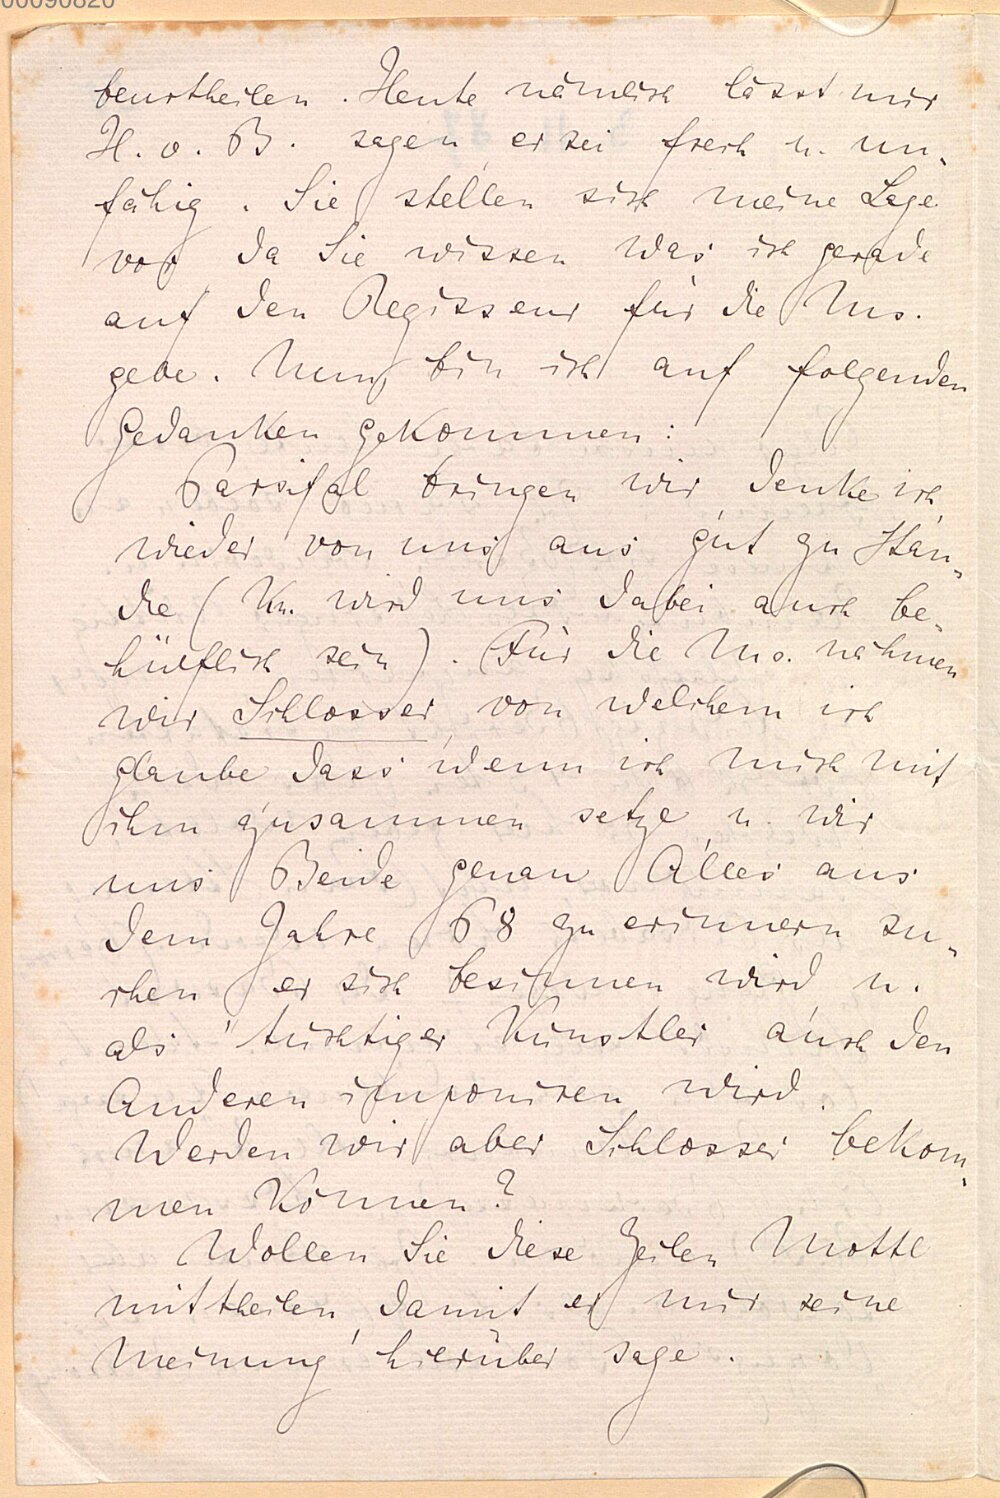 00090820
beurtheilen. Heute nämlich lässt mir
H. v. B. sagen, er sei frech u. un-
fähig. Sie stellen sich meine Lage
vor da Sie wissen was ich gerade
auf den Regisseur für die Ms.
gebe. Nun bin ich auf folgenden
Gedanken gekommen:
Parsifal bringen wir, denke ich,
wieder von uns aus gut zu Stan-
de (Kn. wird uns dabei auch be-
hülflich sein). Für die Ms. nähmen
wir Schlosser, von welchem ich
glaube dass wenn ich mich mit
ihm zusammen setze u. wir
uns Beide genau Alles aus
dem Jahre 68 zu erinnern su-
chen, er sich besinnen wird, u.
als tüchtiger Künstler auch den
Anderen imponiren wird.
Werden wir aber Schlosser bekom-
men können?
Wollen Sie diese Zeilen Mottl
mittheilen, damit er mir seine
Meinung hierüber sage.